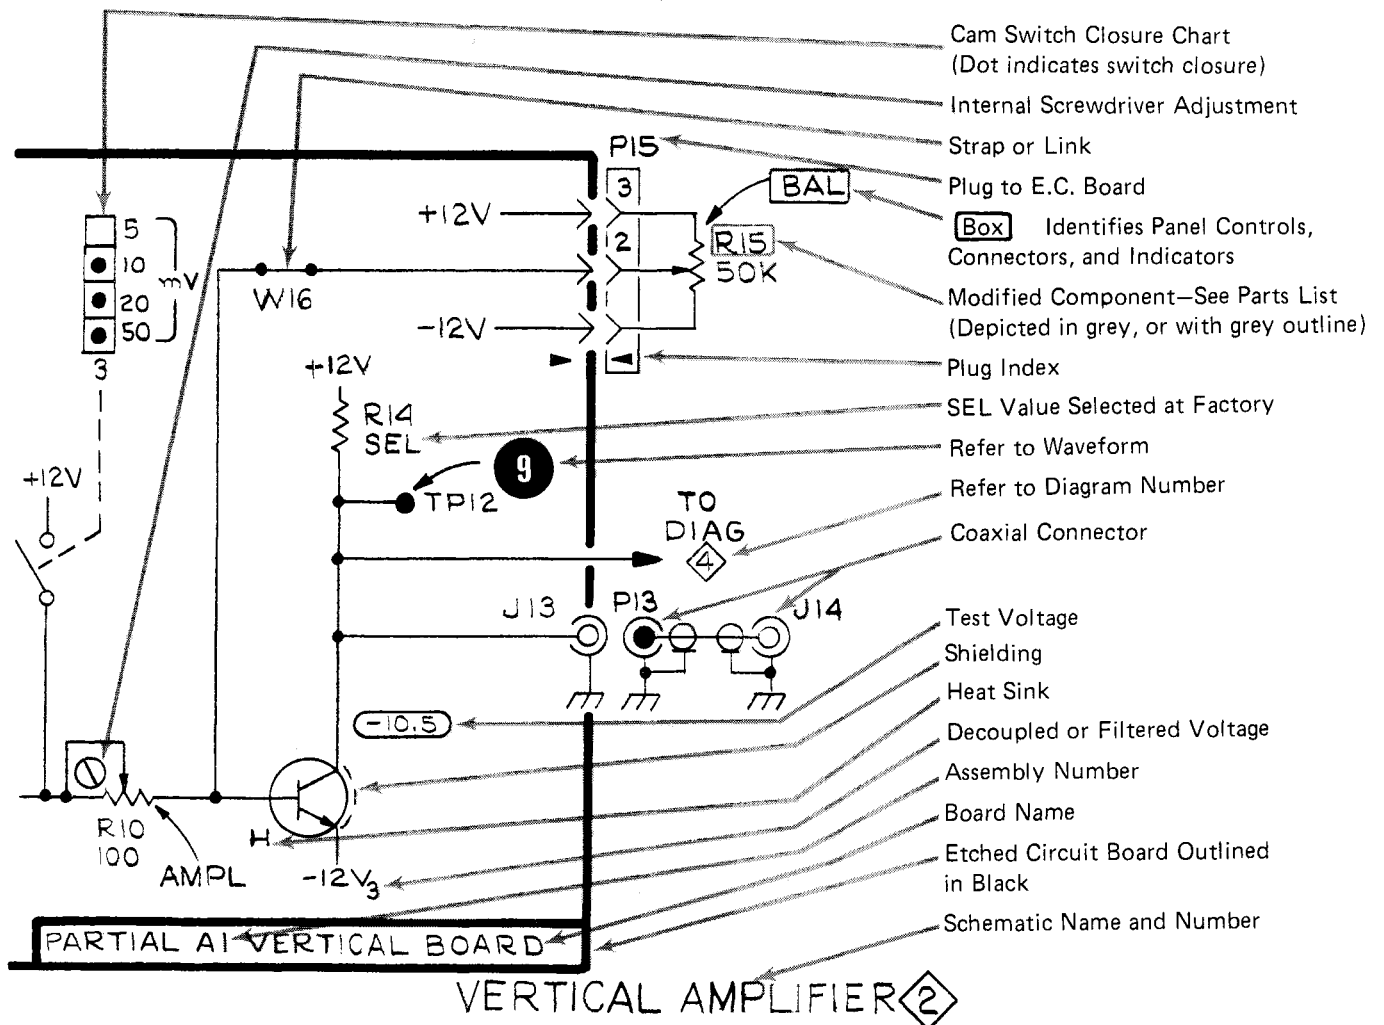 Cam Switch Closure Chart
(Dot indicates switch closure)
Internal Screwdriver Adjustment
Strap or Link
Plug to E.C. Board
Box Identifies Panel Controls,
Connectors, and Indicators
Modified Component—See Parts List
(Depicted in grey, or with grey outline)
Plug Index
SEL Value Selected at Factory
Refer to Waveform
Refer to Diagram Number
Coaxial Connector
Test Voltage
Shielding
Heat Sink
Decoupled or Filtered Voltage
Assembly Number
Board Name
Etched Circuit Board Outlined
in Black
Schematic Name and Number
P15
3
2
BAL
R15
50K
+12V
-12V
W16
5
10
20
50
mV
3
+12V
R14
SEL
9
TP12
+12V
TO
DIAG
4
J13
P13
J14
-10.5
R10
100
AMPL
H
-12V3
PARTIAL A1 VERTICAL BOARD
VERTICAL AMPLIFIER 2